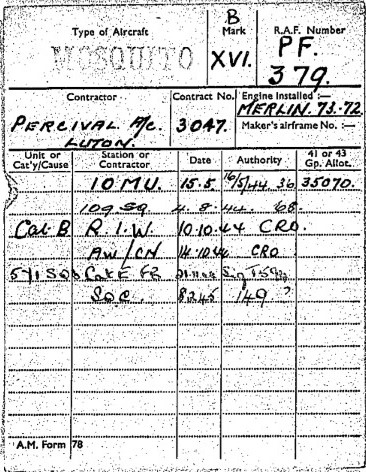 Type of Aircraft
B
Mark
R.A.F. Number
MOSQUITO
XVI.
PF.
379.
Contractor
Contract No.
Engine Installed :—
MERLIN. 73.72.
PERCIVAL A/C.
LUTON.
3047.
Maker's airframe No. :—
Unit or Cat'y/Cause
Station or Contractor
Date
Authority
41 or 43 Gp. Allot.
10 MU. 15.5. 16/5/44 36 35070.
109 SQ 4.8.44. 68
Cat B R.I.W. 10.10.44 CRO.
AW/CN 14.10.44 CRO
571 SQD Cat E FR
SOC. 8.2.45 149
A.M. Form 78